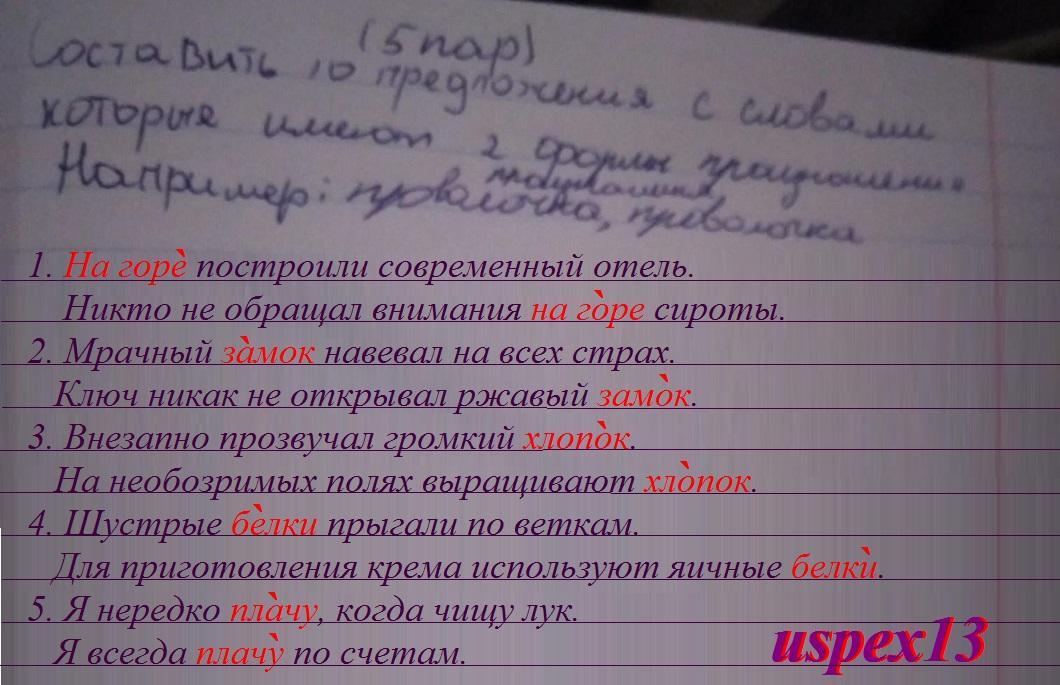 (5 пар)
Составить 10 предложения с словами
которые имеют 2 формы
Например: проволочка, проволочка
1. На горѐ построили современный отель.
Никто не обращал внимания на го̀ре сироты.
2. Мрачный за̀мок навевал на всех страх.
Ключ никак не открывал ржавый замо̀к.
3. Внезапно прозвучал громкий хлопо̀к.
На необозримых полях выращивают хло̀пок.
4. Шустрые бѐлки прыгали по веткам.
Для приготовления крема используют яичные белкѝ.
5. Я нередко пла̀чу, когда чищу лук.
Я всегда плачу̀ по счетам.
uspex13